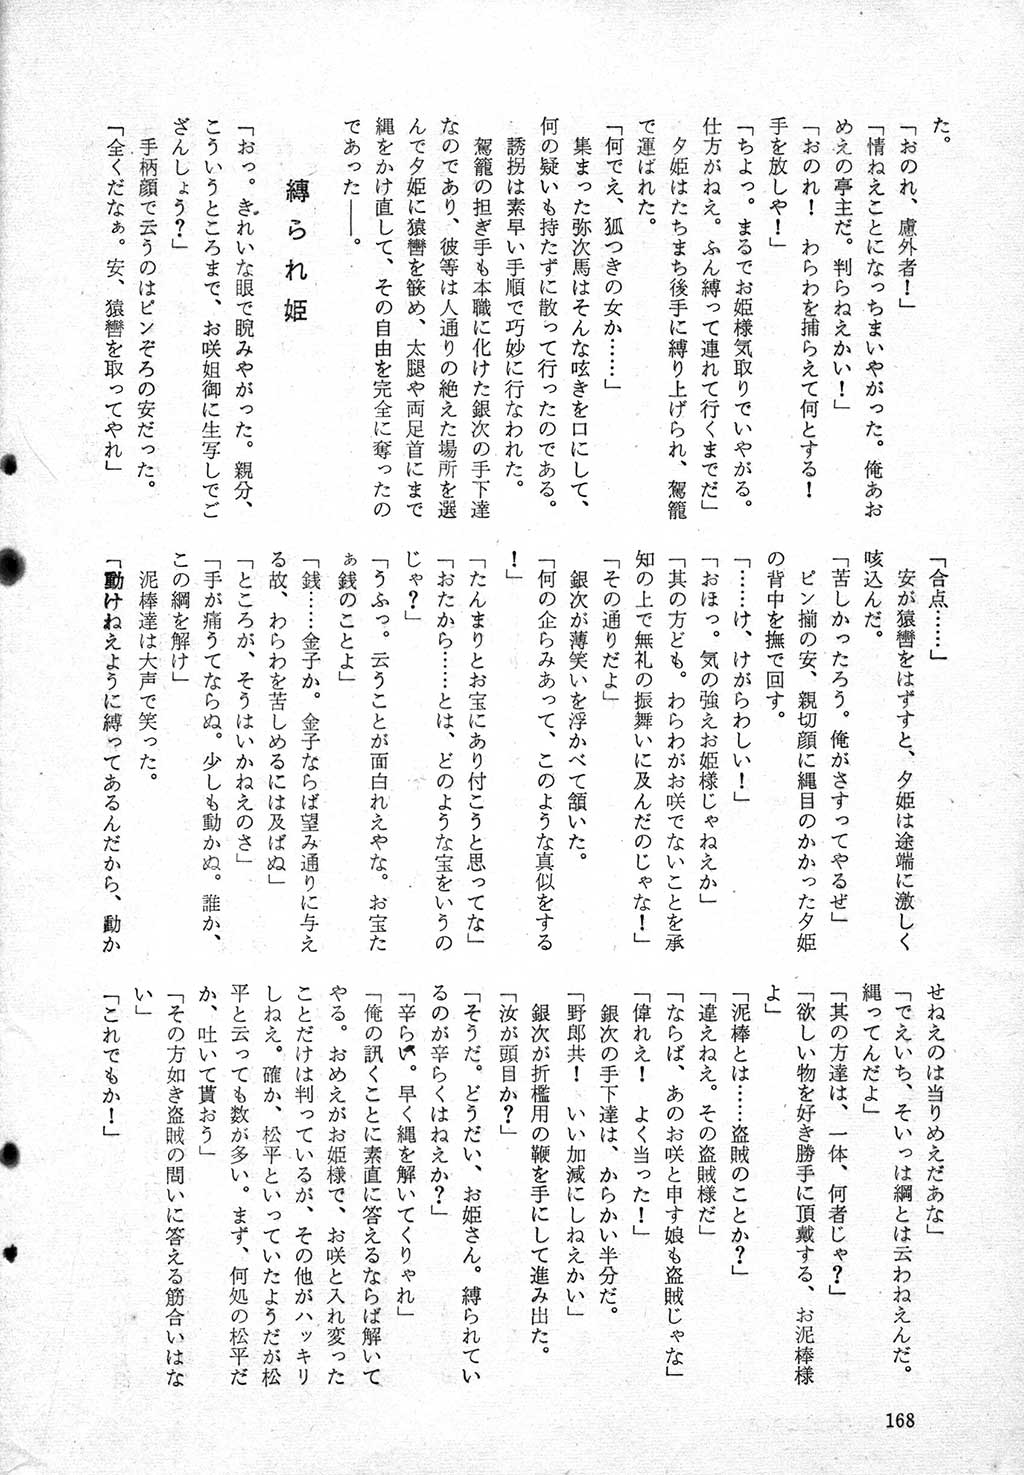 た。
「おのれ、慮外者！」
「情ねえことになっちまいやがった。俺あお
めえの亭主だ。判らねえかい！」
「おのれ！　わらわを捕らえて何とする！
手を放しや！」
「ちよっ。まるでお姫様気取りでいやがる。
仕方がねえ。ふん縛って連れて行くまでだ」
夕姫はたちまち後手に縛り上げられ、駕籠
で運ばれた。
「何でえ、狐つきの女か……」
集まった弥次馬はそんな呟きを口にして、
何の疑いも持たずに散って行ったのである。
誘拐は素早い手順で巧妙に行なわれた。
駕籠の担ぎ手も本職に化けた銀次の手下達
なのであり、彼等は人通りの絶えた場所を選
んで夕姫に猿轡を篏め、太腿や両足首にまで
縄をかけ直して、その自由を完全に奪ったの
であった――。
縛られ姫
「おっ。きれいな眼で睨みやがった。親分、
こういうところまで、お咲姐御に生写しでご
ざんしょう？」
手柄顔で云うのはピンぞろの安だった。
「全くだなぁ。安、猿轡を取ってやれ」
「合点……」
安が猿轡をはずすと、夕姫は途端に激しく
咳込んだ。
「苦しかったろう。俺がさすってやるぜ」
ピン揃の安、親切顔に縄目のかかった夕姫
の背中を撫で回す。
「……け、けがらわしい！」
「おほっ。気の強えお姫様じゃねえか」
「其の方ども。わらわがお咲でないことを承
知の上で無礼の振舞いに及んだのじゃな！」
「その通りだよ」
銀次が薄笑いを浮かべて頷いた。
「何の企らみあって、このような真似をする
！」
「たんまりとお宝にあり付こうと思ってな」
「おたから……とは、どのような宝をいうの
じゃ？」
「うふっ。云うことが面白れえやな。お宝た
ぁ銭のことよ」
「銭……金子か。金子ならば望み通りに与え
る故、わらわを苦しめるには及ばぬ」
「ところが、そうはいかねえのさ」
「手が痛うてならぬ。少しも動かぬ。誰か、
この綱を解け」
泥棒達は大声で笑った。
「動けねえように縛ってあるんだから、動か
せねえのは当りめえだあな」
「でえいち、そいっは綱とは云わねえんだ。
縄ってんだよ」
「其の方達は、一体、何者じゃ？」
「欲しい物を好き勝手に頂戴する、お泥棒様
よ」
「泥棒とは……盗賊のことか？」
「違えねえ。その盗賊様だ」
「ならば、あのお咲と申す娘も盗賊じゃな」
「偉れえ！　よく当った！」
銀次の手下達は、からかい半分だ。
「野郎共！　いい加減にしねえかい」
銀次が折檻用の鞭を手にして進み出た。
「汝が頭目か？」
「そうだ。どうだい、お姫さん。縛られてい
るのが辛らくはねえか？」
「辛らい。早く縄を解いてくりゃれ」
「俺の訊くことに素直に答えるならば解いて
やる。おめえがお姫様で、お咲と入れ変った
ことだけは判っているが、その他がハッキリ
しねえ。確か、松平といっていたようだが松
平と云っても数が多い。まず、何処の松平だ
か、吐いて貰おう」
「その方如き盗賊の問いに答える筋合いはな
い」
「これでもか！」
168